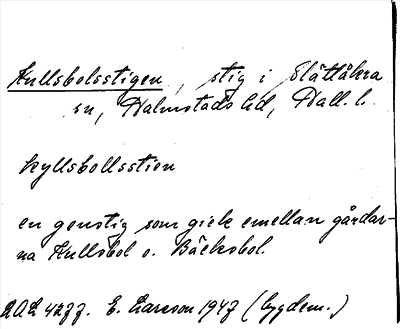 Kullsbolsstigen, stig i Slättåkra
sn, Halmstads hd, Hall. l.
kyllsbollsstien
en genstig som gick emellan gårdar-
na Kullsbol o. Bäcksbol.
DAL 4277. E. Larsson 1947 (bygdem.)